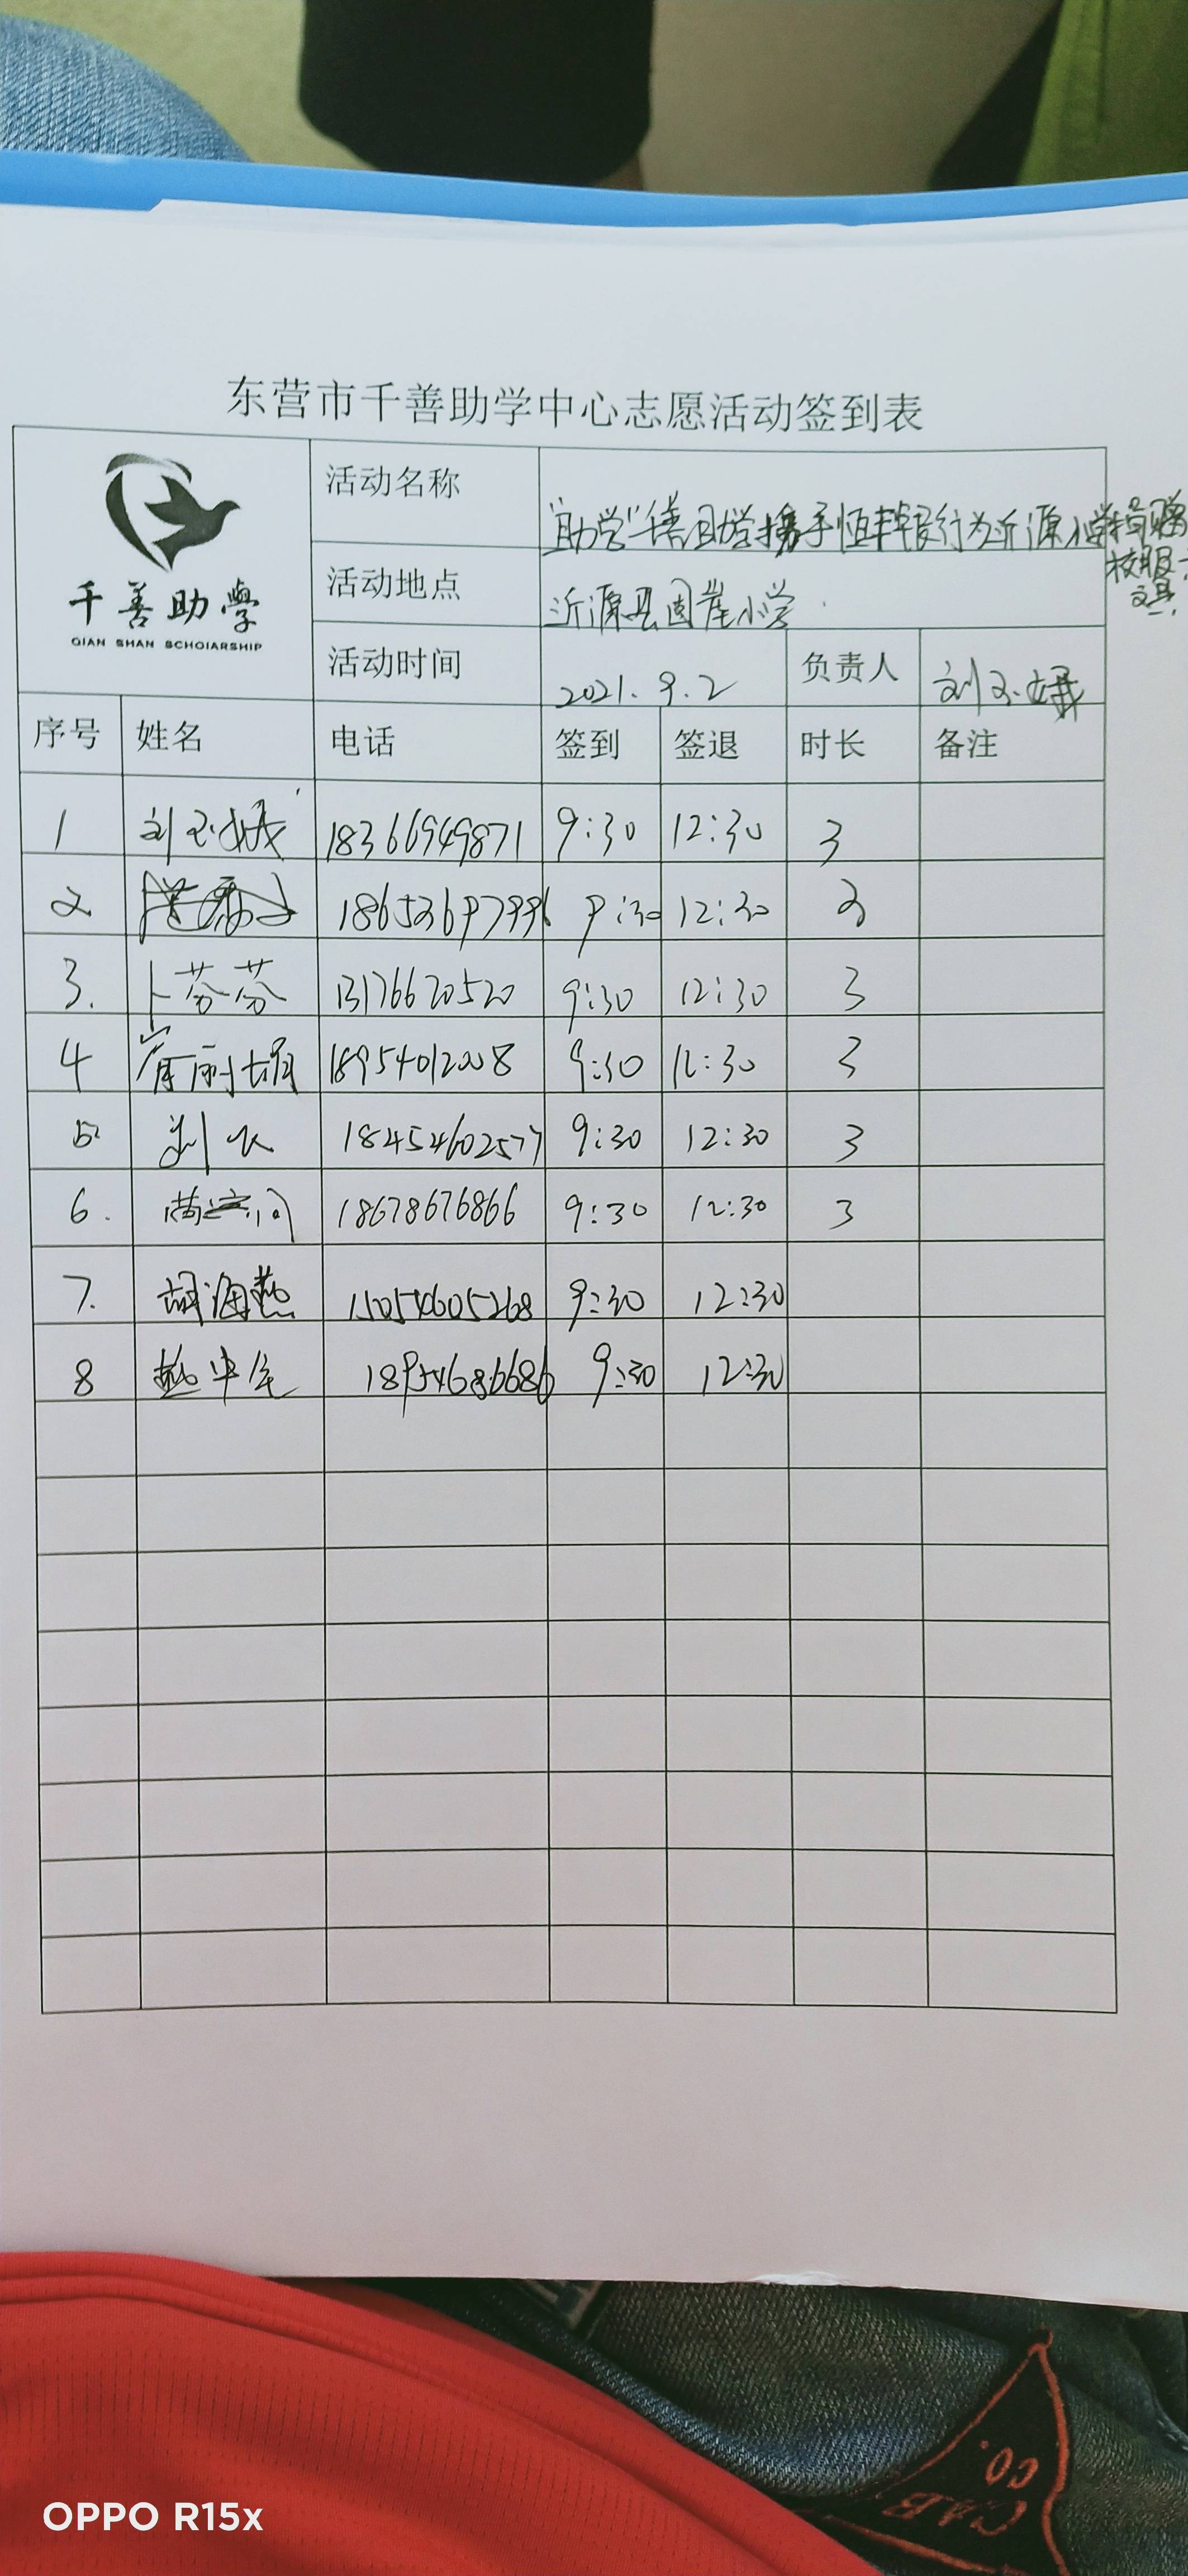 东营市千善助学中心志愿活动签到表
千善助學
QIAN SHAN SCHOIARSHIP
活动名称
"助学"千善助学携手恒丰银行为沂源小学捐赠
校服
文具
活动地点 沂源县固崖小学
活动时间 2021.9.2 负责人 刘玉娥
序号 姓名 电话 签到 签退 时长 备注
1 刘玉娥 18366949871 9:30 12:30 3
2 9:30 12:30 3
3. 卜芬芬 13176670520 9:30 12:30 3
4 崔丽娟 18954012008 9:30 12:30 3
5 刘 18454602577 9:30 12:30 3
6. 18678676866 9:30 12:30 3
7. 胡海燕 15054605268 9:30 12:30
8 赵中全 18954686686 9:30 12:30
CAB
CO.
OPPO R15x